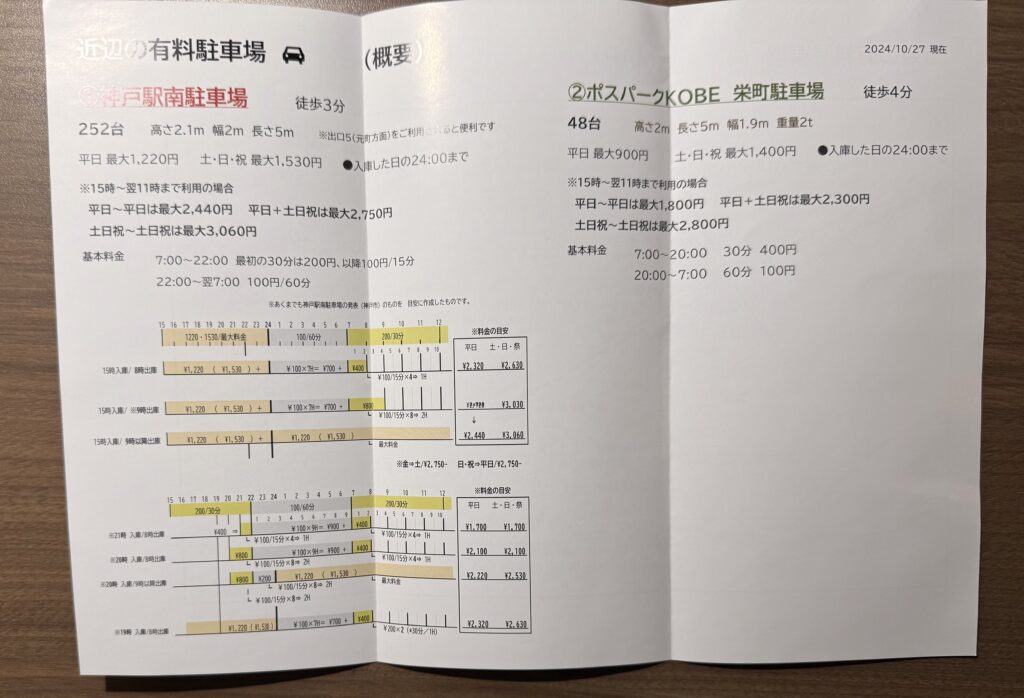 近辺の有料駐車場 (概要)
2024/10/27 現在
①神戸駅南駐車場 徒歩3分
252台 高さ2.1m 幅2m 長さ5m ※出口5(元町方面)をご利用されると便利です
平日 最大1,220円 土・日・祝 最大1,530円 ●入庫した日の24:00まで
※15時～翌11時まで利用の場合
平日～平日は最大2,440円 平日＋土日祝は最大2,750円
土日祝～土日祝は最大3,060円
基本料金 7:00～22:00 最初の30分は200円、以降100円/15分
22:00～翌7:00 100円/60分
※あくまでも神戸駅南駐車場の発表（神戸市）のものを 目安に作成したものです。
15 16 17 18 19 20 21 22 23 24 1 2 3 4 5 6 7 8 9 10 11 12
※料金の目安
1220・1530/最大料金 100/60分 200/30分
平日 土・日・祭
1 2 3 4 5 6 7 8 9 10
15時入庫/ 8時出庫 ¥1,220 ( ¥1,530 ) + ¥100×7H= ¥700 + ¥400 ¥2,320 ¥2,630
¥100/15分×4⇒ 1H
15時入庫/ ※9時出庫 ¥1,220 ( ¥1,530 ) + ¥100×7H= ¥700 + ¥800 ¥3,030
¥100/15分×8⇒ 2H ↓
15時入庫/ 9時以降出庫 ¥1,220 ( ¥1,530 ) + ¥1,220 ( ¥1,530 ) ¥2,440 ¥3,060
最大料金
※金⇒土/¥2,750- 日・祝⇒平日/¥2,750-
※料金の目安
15 16 17 18 19 20 21 22 23 24 1 2 3 4 5 6 7 8 9 10 11 12
200/30分 100/60分 200/30分
平日 土・日・祭
1 2 3 4 5 6 7 8 9 1 2 3 4 5 6 7 8 9 10
※21時 入庫/8時出庫 ¥400 ⇒ ¥100×9H= ¥900 + ¥400 ¥1,700 ¥1,700
¥100/15分×4⇒ 1H ¥100/15分×4⇒ 1H
※20時 入庫/8時出庫 ¥800 ¥100×9H= ¥900 + ¥400 ¥2,100 ¥2,100
¥100/15分×8⇒ 2H ¥100/15分×4⇒ 1H
※20時 入庫/9時以降出庫 ¥800 ¥200 ¥1,220 ( ¥1,530 ) ¥2,220 ¥2,530
¥100/15分×8⇒ 2H 最大料金
¥100/15分×8⇒ 2H
※19時 入庫/8時出庫 ¥1,220 ( ¥1,530 ) ¥100×7H= ¥700 + ¥400 ¥2,320 ¥2,630
¥200×2 (*30分/1H)
②ポスパークKOBE 栄町駐車場 徒歩4分
48台 高さ2m 長さ5m 幅1.9m 重量2t
平日 最大900円 土・日・祝 最大1,400円 ●入庫した日の24:00まで
※15時～翌11時まで利用の場合
平日～平日は最大1,800円 平日＋土日祝は最大2,300円
土日祝～土日祝は最大2,800円
基本料金 7:00～20:00 30分 400円
20:00～7:00 60分 100円